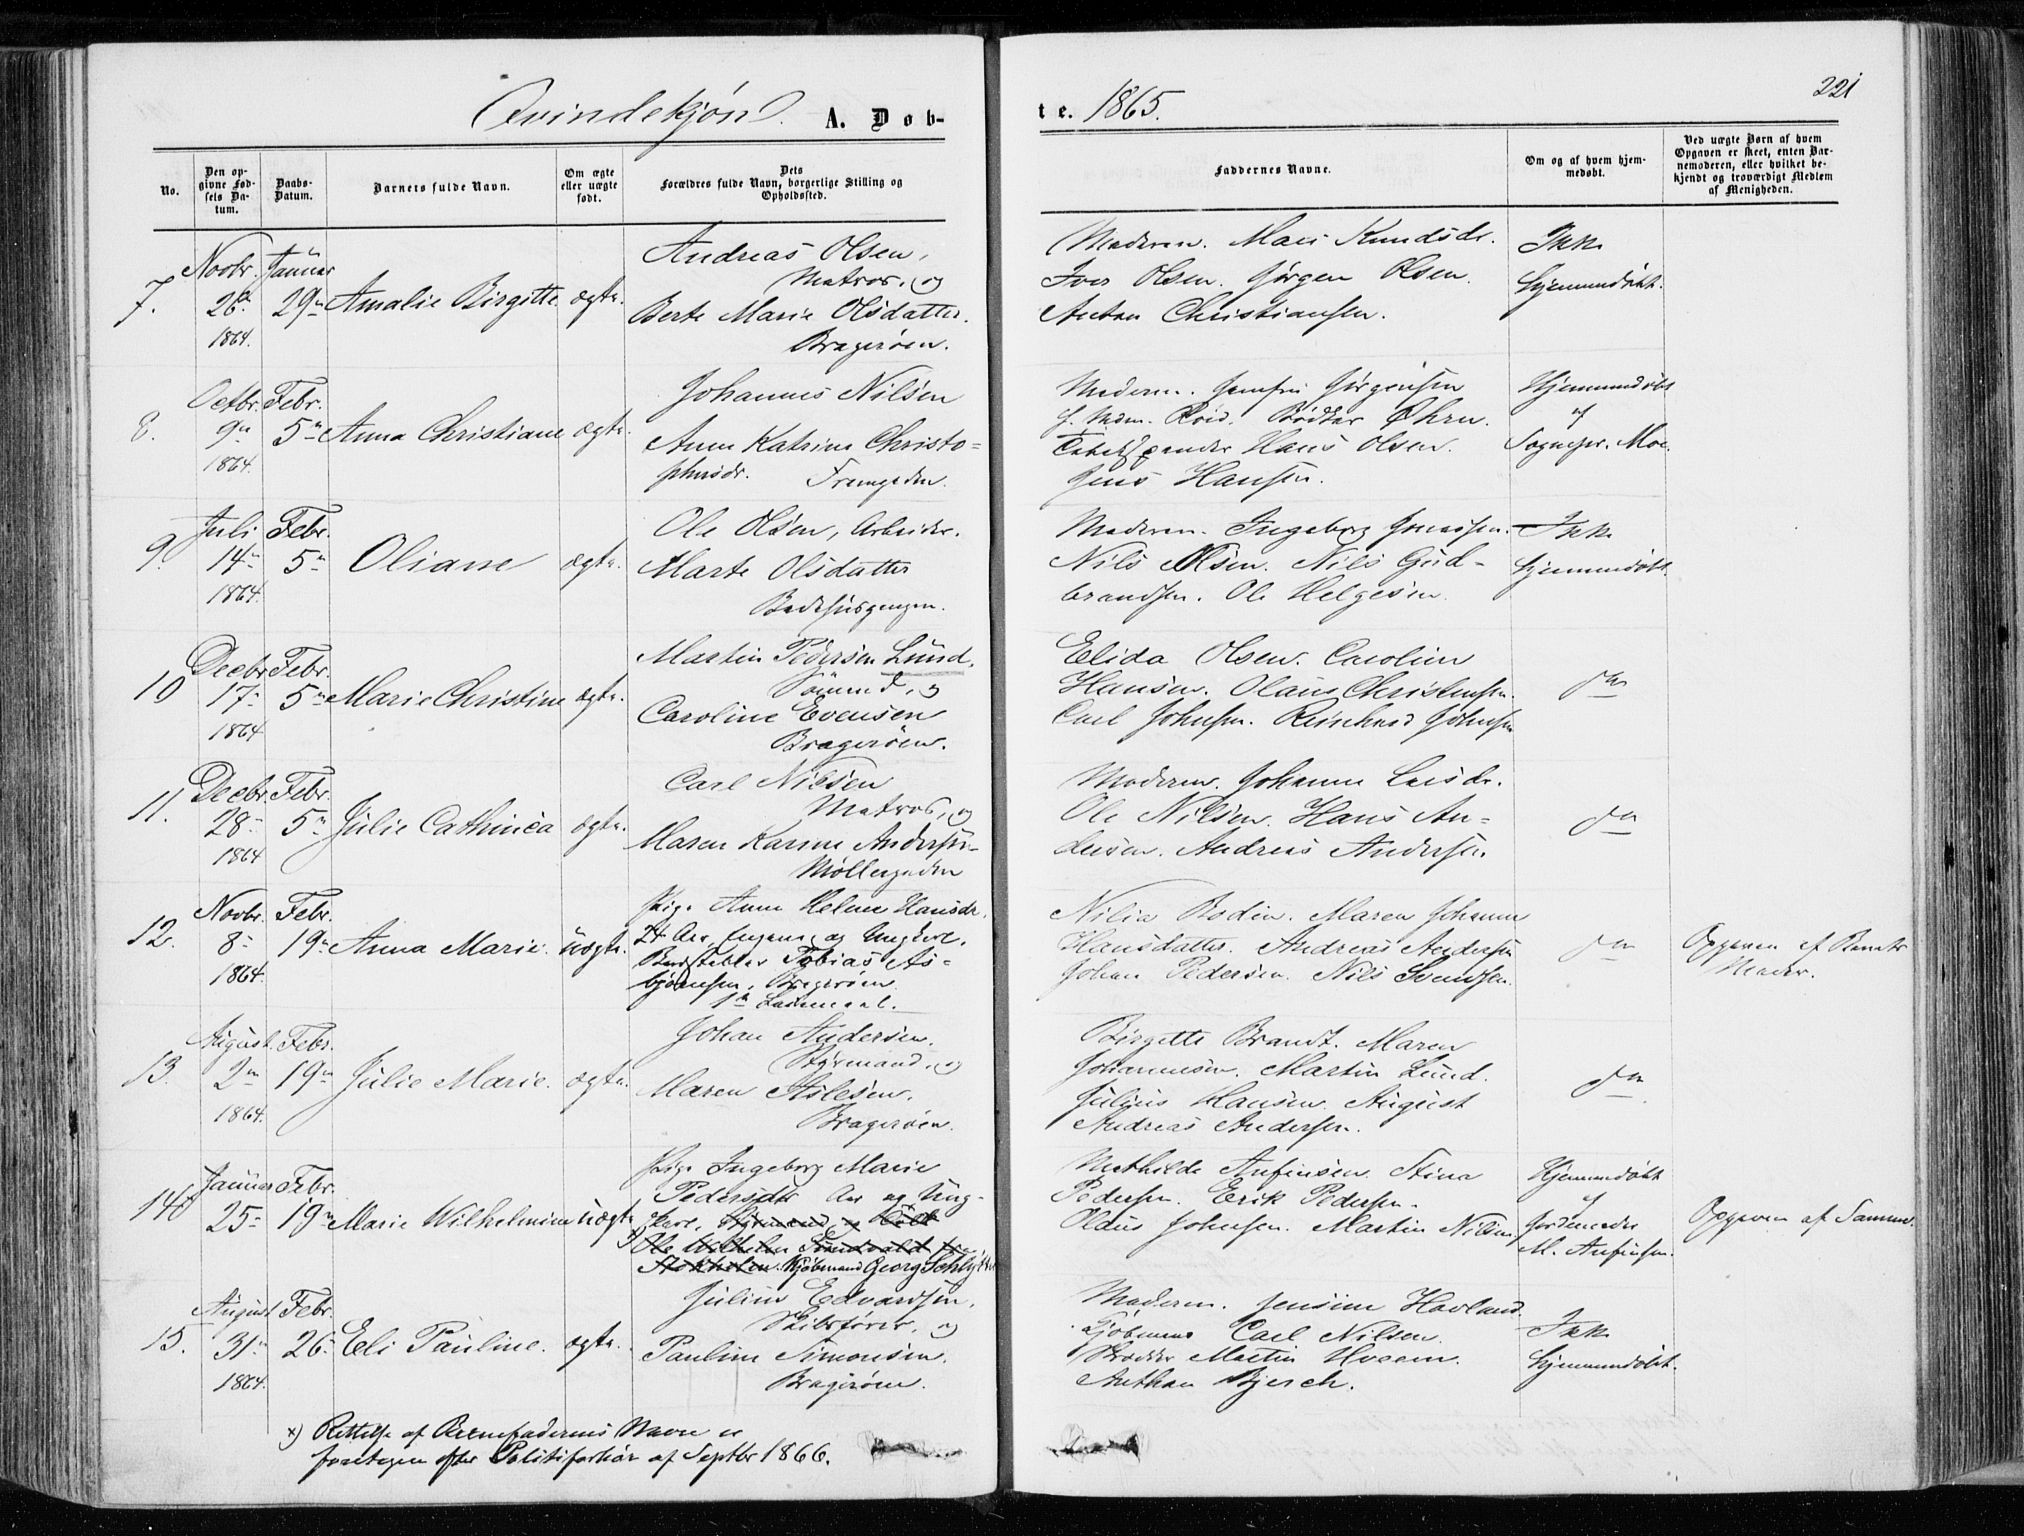 Qvindekjøn. A. Døb-
te. 1865.
221
No.
Den op-
givne Fød-
sels Da-
tum.
Daabs-
Datum.
Barnets fulde Navn.
Om ægte
eller uægte
født.
Dets
Forældres fulde Navn, borgerlige Stilling og
Opholdssted.
Faddernes Navne.
Om og af hvem hjem-
medøbt.
Ved uægte Børn af hvem
Opgaven er skeet, enten Bar-
nemoderen, eller hvilket be-
kjendt og troværdigt Medlem
af Menigheden.
7.
Novbr.
28
1864.
Januar
29
Amalie Birgitte
ægte.
Andreas Olsen,
Matros, og
Berte Marie Olsdatter.
Bragerøen.
Moderen. Mari Knudsdr.
Iver Olsen. Jørgen Olsen.
Anton Christiansen.
Ikke
hjemmedøbt.
8.
Octbr.
9
1864.
Febr.
5
Anna Christiane
ægte.
Johannes Nilsen
Anne Katrine Christo-
phersdr.
Moderen. Jomfru Jørgensen
Bødker Øhrn.
Hans Olsen.
Jens Hansen.
Hjemmedøbt
af
Sognepr. Moe.
9.
Juli
14
1864.
Febr.
5
Oliane
ægte.
Ole Olsen, Arbeider.
Marte Olsdatter
Moderen. Ingeborg Jonassen.
Nils Olsen. Nils Gud-
brandsen. Ole Helgesen.
Ikke
hjemmedøbt.
10
Decbr.
17
1864
Febr.
5
Marie Christine
ægte.
Martin Pedersen Lund,
Sømand, og
Caroline Evensen
Bragerøen.
Elida Olsen. Caroline
Hansen. Olaus Christensen.
Carl Johnsen. Reinhard Johnsen
do
11.
Decbr.
28
1864
Febr.
5
Julie Cathinca
ægte.
Carl Nilsen
Matros, og
Maren Karine Andersen
Møllergaden
Moderen. Johanne Larsdr.
Ole Nilsen. Hans An-
dersen. Andreas Andersen.
do
12.
Novbr.
8
1864.
Febr.
19
Anna Marie.
uægte.
Pige Anne Helene Hansdr.
24 Aar, og Ungkarl,
Tobias As-
bjørnsen, Bragerøen.
1ste Leiermaal.
Nilia Bodin. Maren Johanne
Hansdatter. Andreas Andersen
Johan Pedersen. Nils Svendsen.
do
Opgaven af Barnets
Moder.
13.
August
2
1864.
Febr.
19
Julie Marie.
ægte.
Johan Andersen,
Styrmand, og
Maren Aslesen,
Bragerøen.
Birgitte Brandt. Maren
Johannesen. Martin Lund.
Julius Hansen. August
Andreas Andersen.
do
14
Januar
25
Febr.
19
Marie Wilhelmine
uægte
Pige Ingeborg Marie
Pedersdtr Aar og Ung-
karl, Styrmand
x) Ole Wilhelm
Stokholm. Kjøbmand Georg Schlytter
Mathilde Anfinsen. Stina
Pedersen. Erik Pedersen.
Olaus Johnsen. Martin Nilsen.
Hjemmedøbt
af
Jordemoder
M. Anfinsen.
Opgaven af Samme.
15.
August
31
1864.
Febr.
26
Eli Pauline.
ægte.
Julius Edvardsen,
Skibsfører, og
Pauline Simonsen.
Bragerøen.
Moderen. Jensine Havland.
Kjøbmand Carl Nilsen.
Martin Hveem.
Anthon Bjerch.
Ikke
hjemmedøbt.
x) Rettelse af Barnefaderens Navn er
foretagen efter Politiforhør af Septbr 1866.